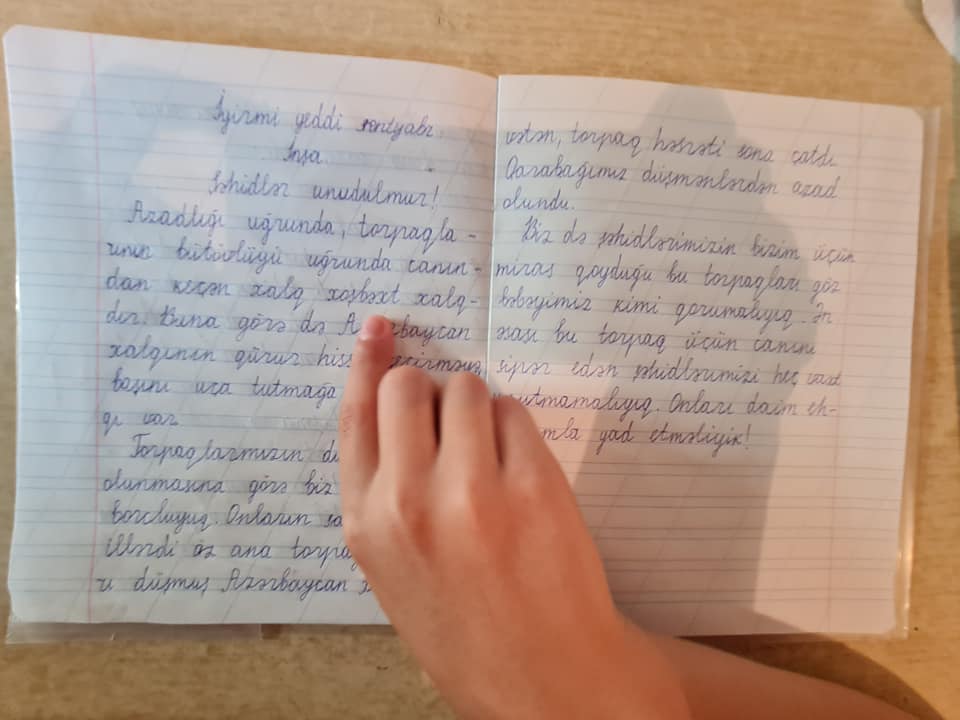 İyirmi yeddi sentyabr.
İnşa.
Şəhidlər unudulmur!
Azadlığı uğrunda, torpaqla-
rının bütövlüğü uğrunda canın-
dan keçən xalq xoşbəxt xalq-
dır. Buna görə də
xalqının gürur
başını uca tutmağa
qı var.
Torpaqlarmızın
olunmasına görə biz
borcluyuq. Onların
illərdi öz ana
düşmuş Azərbaycan
vətən, torpaq həsrəti sona çatdı.
Qarabağımız düşmənlərdən azad
olundu.
Biz də şəhidlərimizin bizim üçün
miras qoyduğu bu torpaqları göz
bəbəyimiz kimi qorumalıyıq. Ən
əsası bu torpaq üçün canını
sipər edən şəhidlərimizi heç vaxt
Onları daim eh-
yad etməliyik!